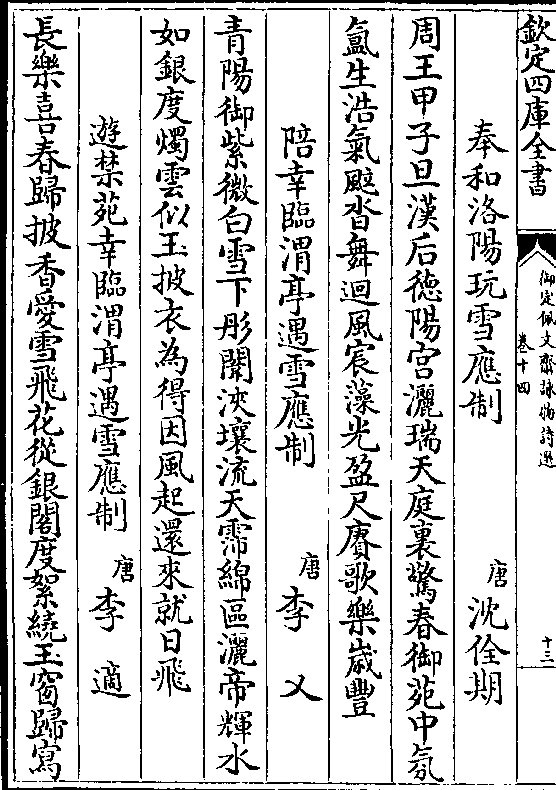 欽定四庫全書
御定佩文齋詠物詩選
卷十四
十三
奉和洛陽玩雪應制
唐 沈佺期
周王甲子旦漢后德陽宮灑瑞天庭裏驚春御苑中氛
氳生浩氣颭沓舞迴風宸藻光盈尺賡歌樂歲豐
陪幸臨渭亭遇雪應制
唐 李乂
青陽御紫微白雪下彤闈浹壤流天霈綿區灑帝輝水
如銀度燭雲似玉披衣為得因風起還來就日飛
遊禁苑幸臨渭亭遇雪應制
唐 李適
長樂喜春歸披香愛雪飛花從銀閣度絮繞玉窗歸寫